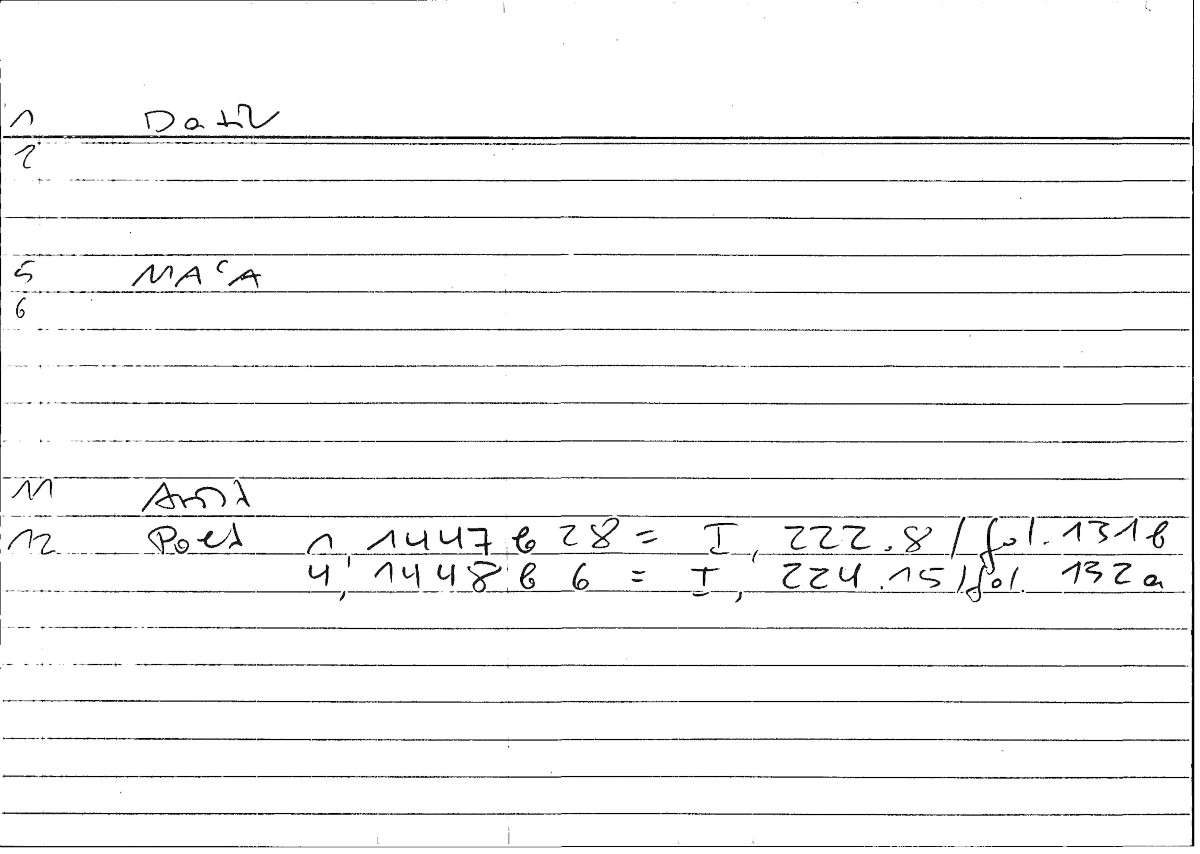 1 Dativ
2
5 MAʿA
6
11 Arist
12 Poet 1, 1447 b 28 = I, 222.8 / fol. 131b
4, 1448 b 6 = I, 224.15 / fol. 132a